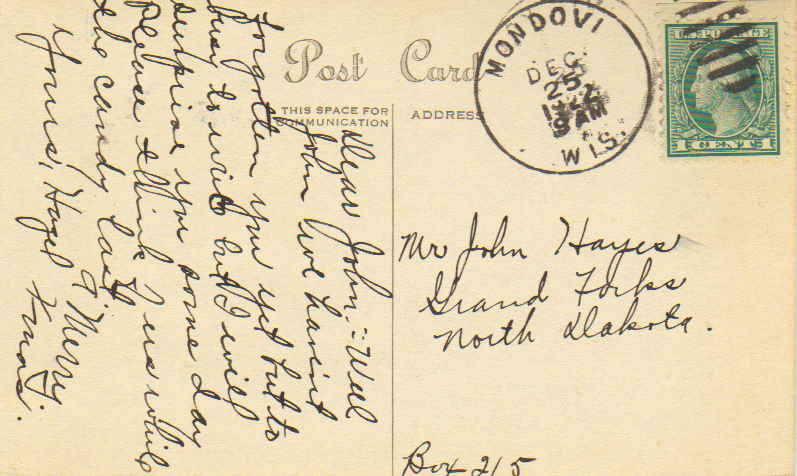 Post Card
THIS SPACE FOR COMMUNICATION
ADDRESS
MONDOVI
DEC
25
9 AM
WIS.
Dear John:- Well
John we havent
forgotten you yet but to
busy to write but I will
surprise you some day
Please think us while
the candy last
Yours, Hazel
A Merry
Xmas.
Mr John Hayes
Grand Forks
North Dakota.
Box 215